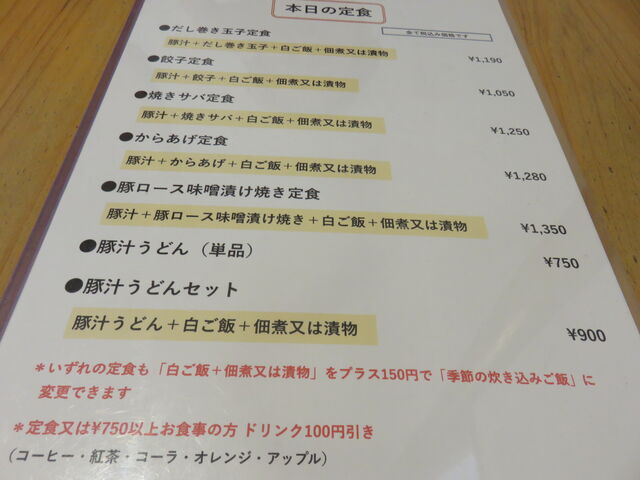 本日の定食
全て税込み価格です
●だし巻き玉子定食
豚汁＋だし巻き玉子＋白ご飯＋佃煮又は漬物
¥1,190
●餃子定食
豚汁＋餃子＋白ご飯＋佃煮又は漬物
¥1,050
●焼きサバ定食
豚汁＋焼きサバ＋白ご飯＋佃煮又は漬物
¥1,250
●からあげ定食
豚汁＋からあげ＋白ご飯＋佃煮又は漬物
¥1,280
●豚ロース味噌漬け焼き定食
豚汁＋豚ロース味噌漬け焼き＋白ご飯＋佃煮又は漬物
¥1,350
●豚汁うどん（単品）
¥750
●豚汁うどんセット
豚汁うどん＋白ご飯＋佃煮又は漬物
¥900
＊いずれの定食も「白ご飯＋佃煮又は漬物」をプラス150円で「季節の炊き込みご飯」に
変更できます
＊定食又は¥750以上お食事の方 ドリンク100円引き
（コーヒー・紅茶・コーラ・オレンジ・アップル）